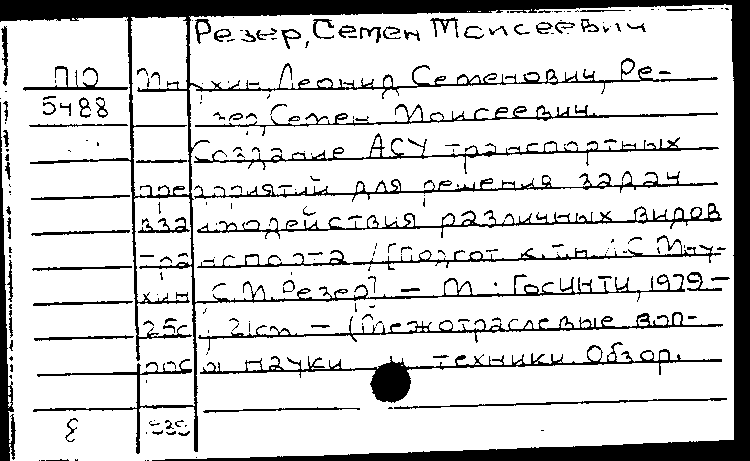 Резер, Семен Моисеевич
П10 Мнухин, Леонид Семенович, Ре-
5488 зер, Семен Моисеевич.
Создание АСУ транспортных
предприятий для решения задач
взаимодействия различных видов
транспорта / [Подгот. к.т.н. Л.С. Мну-
хин, С.М. Резер]. — М.: ГОСИНТИ, 1979 —
25с.; 21см. — (Межотраслевые воп-
росы науки и техники. Обзор.